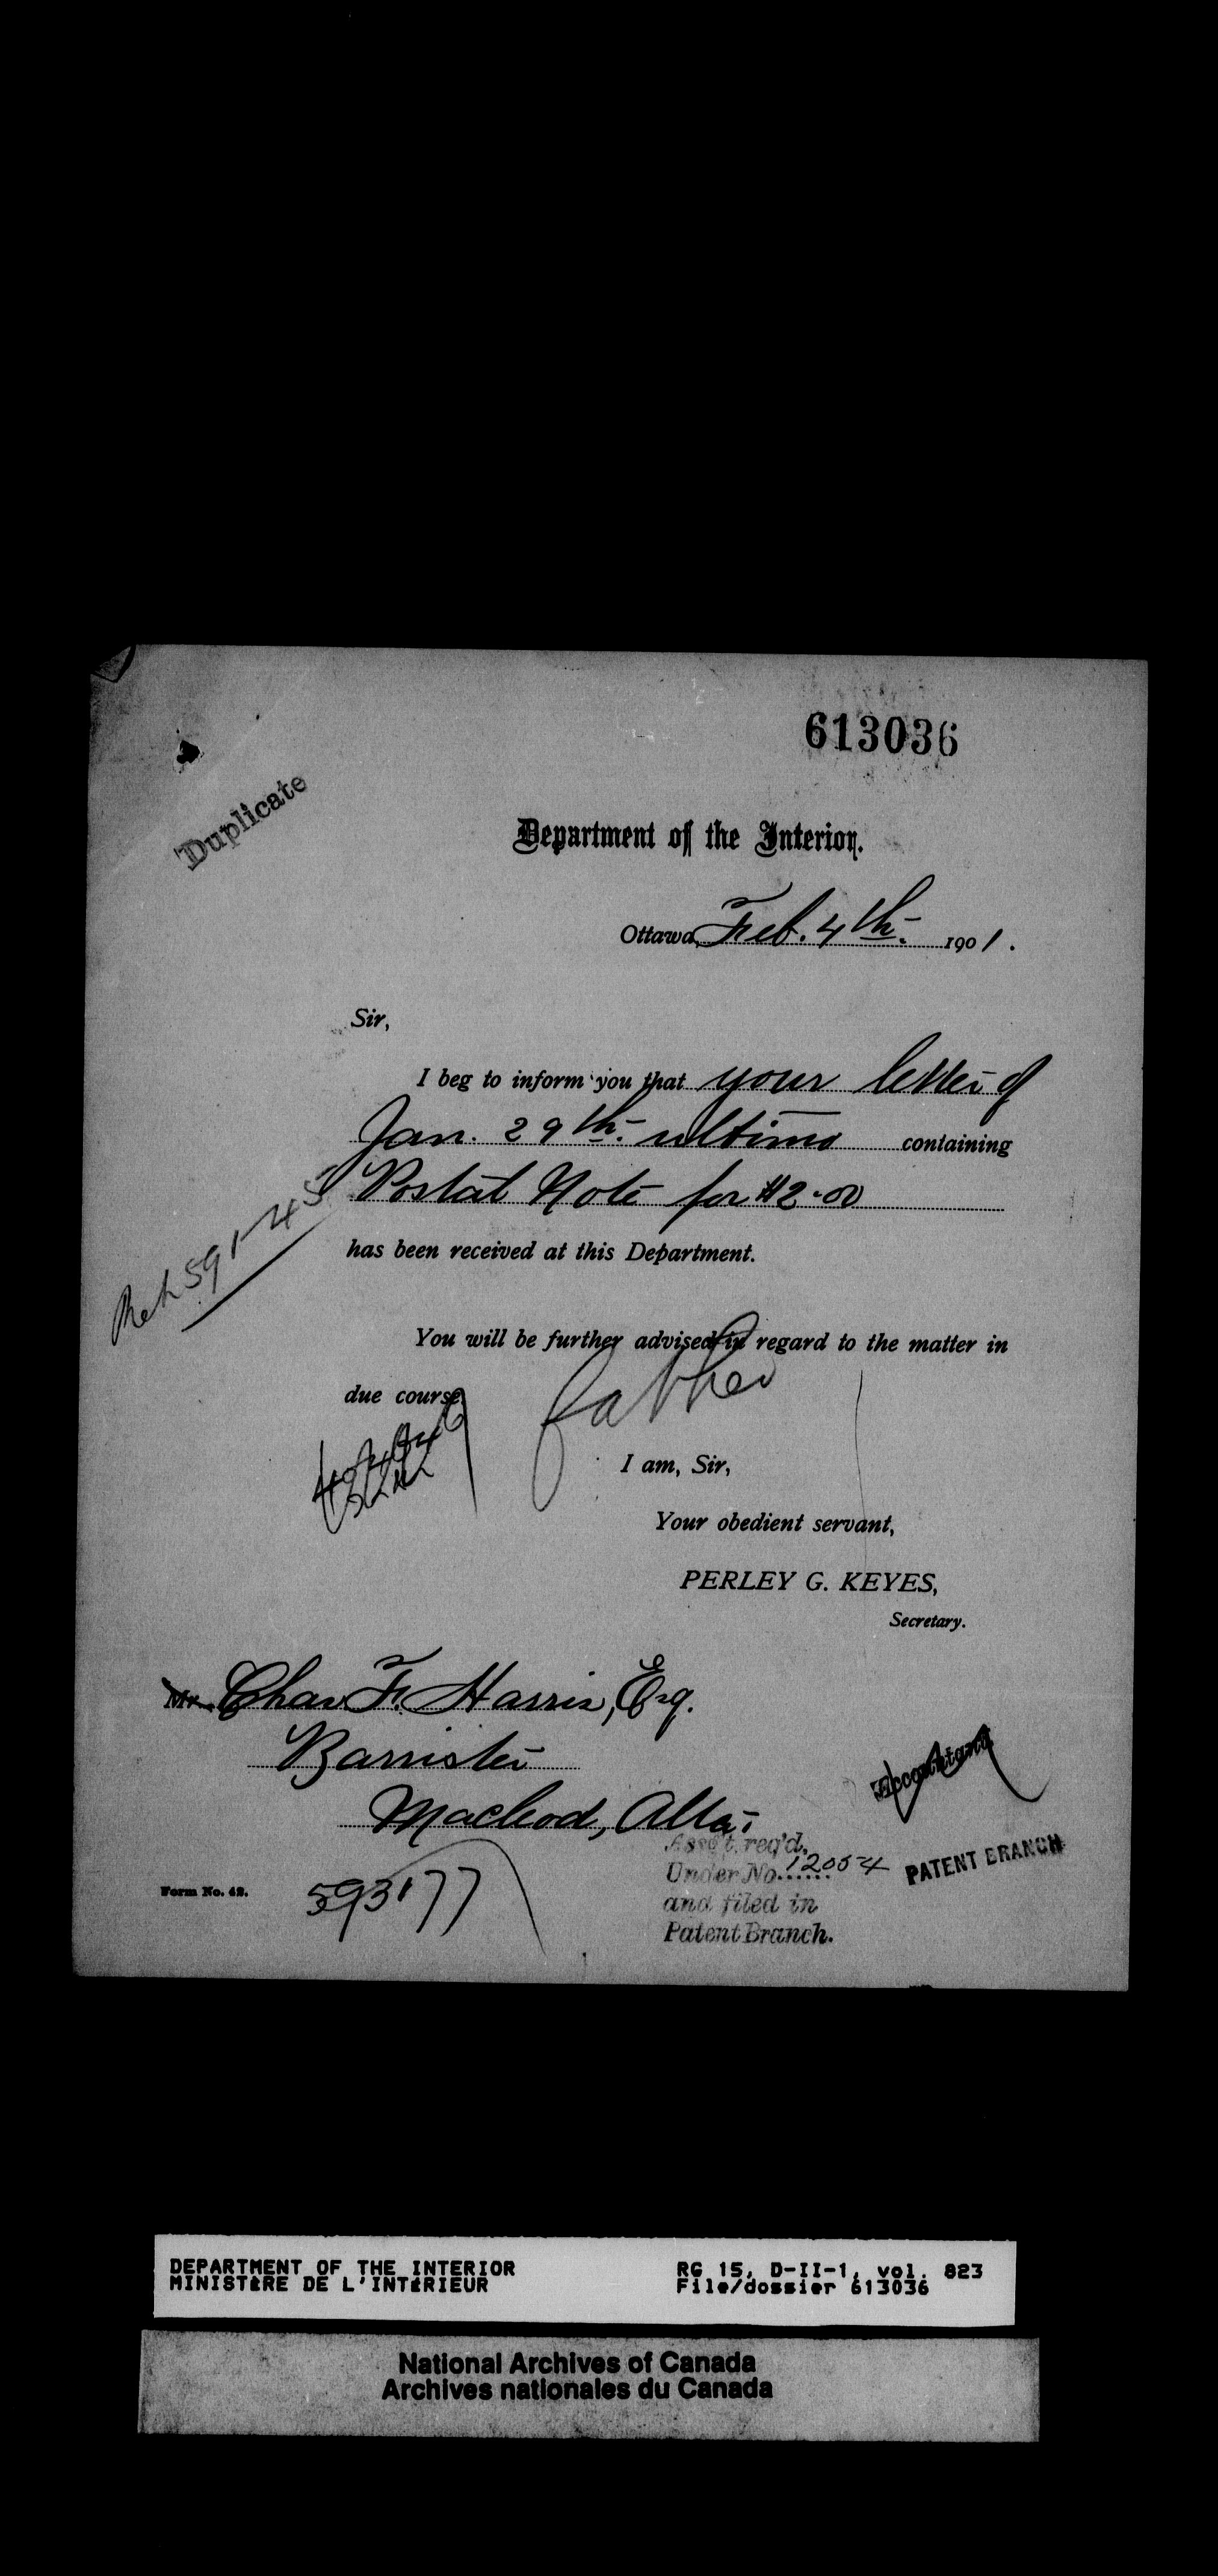 613036
Duplicate
Department of the Interior.
Ottawa, Feb. 4th. 1901.
Sir,
I beg to inform you that your letter of
Jan. 29th. ultimo containing
Postal Note for $2.00
has been received at this Department.
591745
You will be further advised in regard to the matter in
due course.
father
I am, Sir,
Your obedient servant,
PERLEY G. KEYES,
Secretary.
Mr. Chas F. Harris, Esq.
Barrister
Macleod, Alta.
Accountant
Ass'g't. req'd.
Under No. 12054
and filed in
Patent Branch.
PATENT BRANCH
Form No. 42.
593177
DEPARTMENT OF THE INTERIOR
MINISTÈRE DE L'INTÉRIEUR
RG 15, D-II-1, vol. 823
File/dossier 613036
National Archives of Canada
Archives nationales du Canada